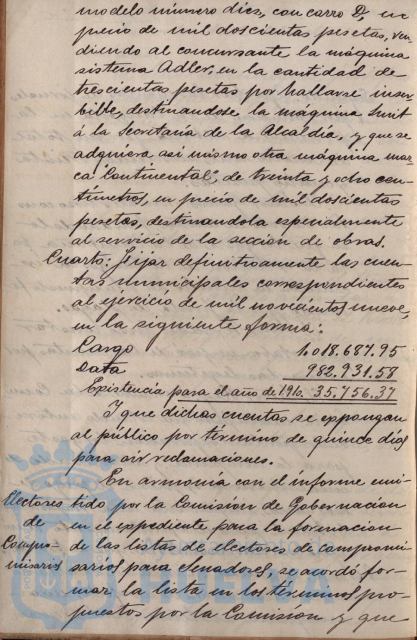 modelo número diez, con carro D, en
precio de mil doscientas pesetas, ven
diendo al concursante la máquina
sistema Adler, en la cantidad de
trescientas pesetas por hallarse inser-
bible, destinandose la máquina Smit
á la Secretaria de la Alcaldía, y que se
adquiera asi mismo otra máquina mar
ca "Continental", de treinta y ocho cen-
tímetros, en precio de mil doscientas
pesetas, destinandola especialmente
al servicio de la seccion de obras.
Cuarto: Fijar definitivamente las cuen-
tas municipales correspondientes
al ejercicio de mil novecientos nueve,
en la siguiente forma:
Cargo 1.018.687.95
Data 982.931.58
Existencia para el año de 1910. 35.756.37
Y que dichas cuentas se expongan
al público por término de quince días
para oir reclamaciones.
En armonía con el informe emi-
Electores de Compro-misarios
tido por la Comision de Gobernacion
en el expediente para la formacion
de las listas de electores de compromi-
sarios para Senadores, se acordó for-
mar la lista en los términos pro-
puestos por la Comision y que
HUELVA